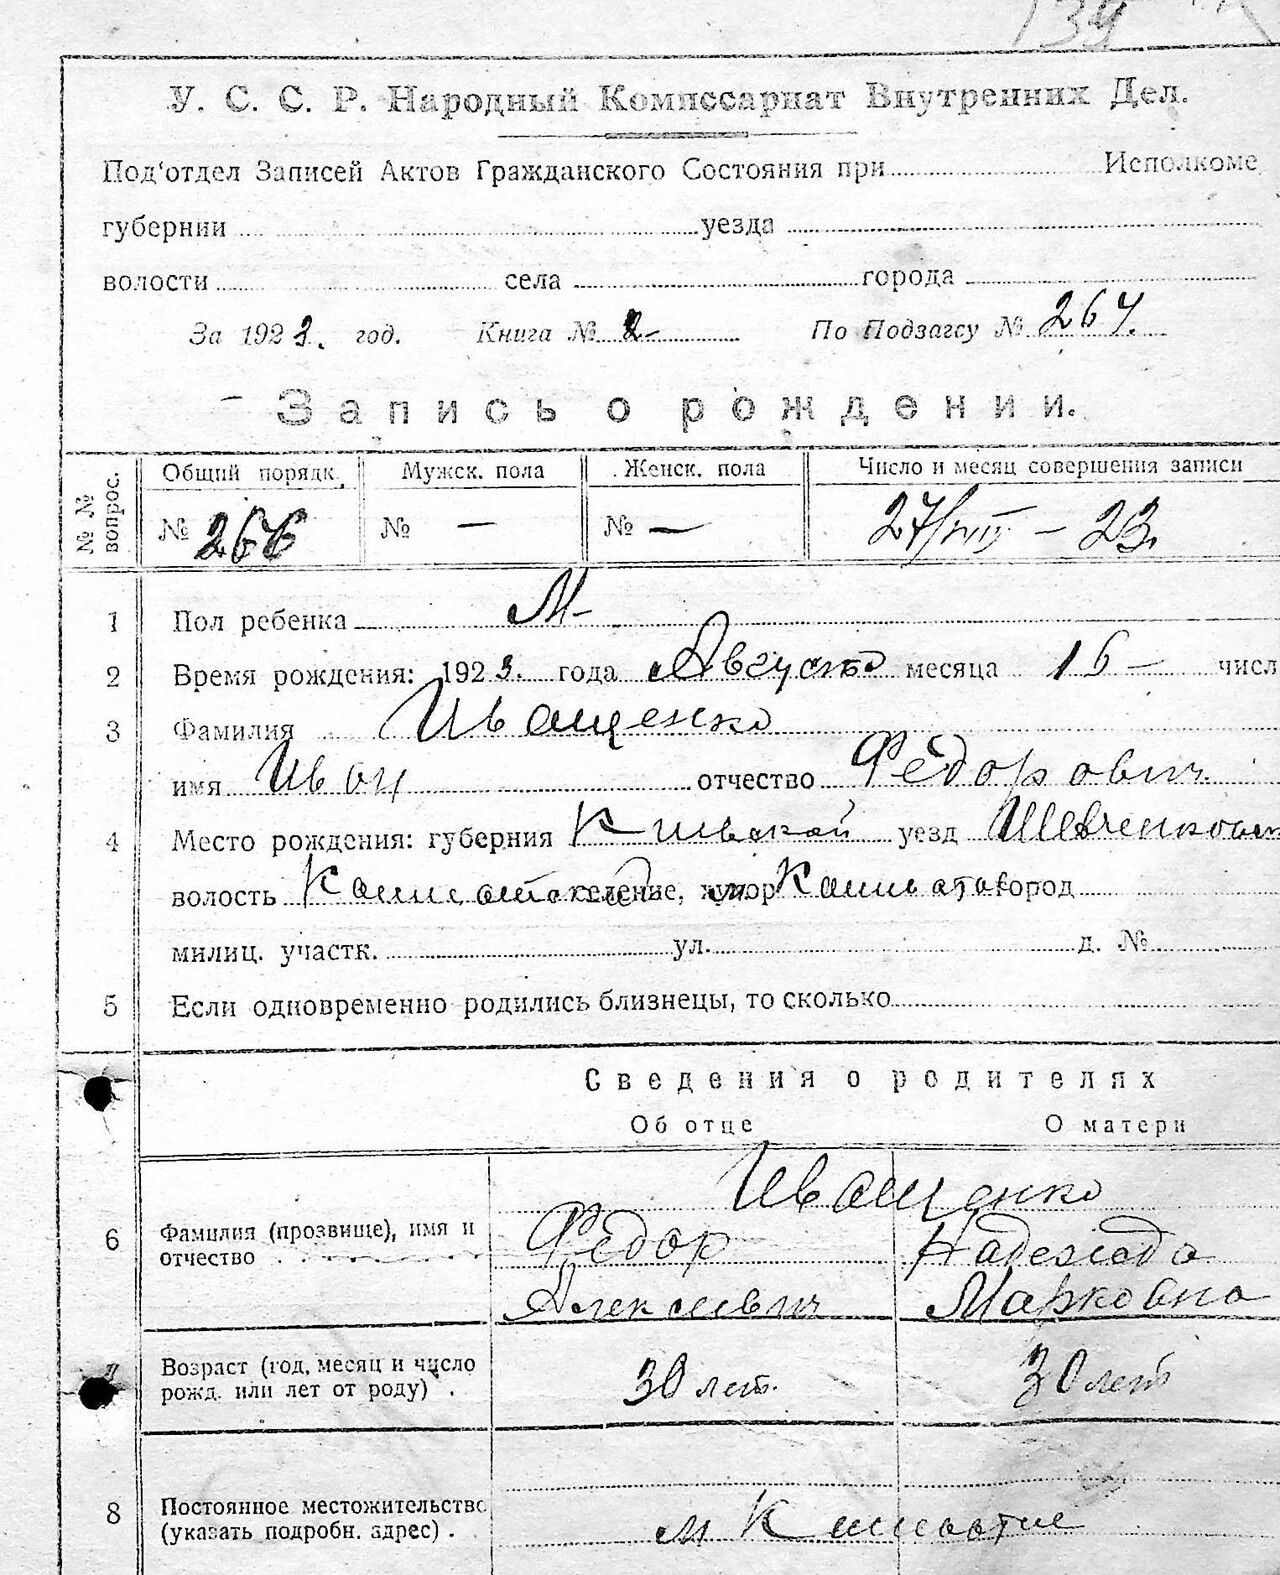 139
У. С. С. Р. Народный Комиссариат Внутренних Дел.
Под'отдел Записей Актов Гражданского Состояния при Исполкоме
губернии уезда
волости села города
За 1923. год. Книга № 2 По Подзагсу № 264.
Запись о рождении.
№ № вопрос. Общий порядк. Мужск. пола Женск. пола Число и месяц совершения записи
№ 266 № — № — 27/VIII – 23.
1 Пол ребенка М-
2 Время рождения: 1923. года Августа месяца 15 — числ
3 Фамилия Иващенко
имя Иван отчество Федорович
4 Место рождения: губерния Киевской уезд Шевченковск
волость селение, хутор город
милиц. участк. ул. д. №
5 Если одновременно родились близнецы, то сколько
Сведения о родителях
Об отце О матери
Иващенко
6 Фамилия (прозвище), имя и Федор Надежда
отчество . . Алексеевич Марковна
7 Возраст (год, месяц и число 30 лет. 30 лет
рожд. или лет от роду) .
8 Постоянное местожительство
(указать подробн. адрес) . м